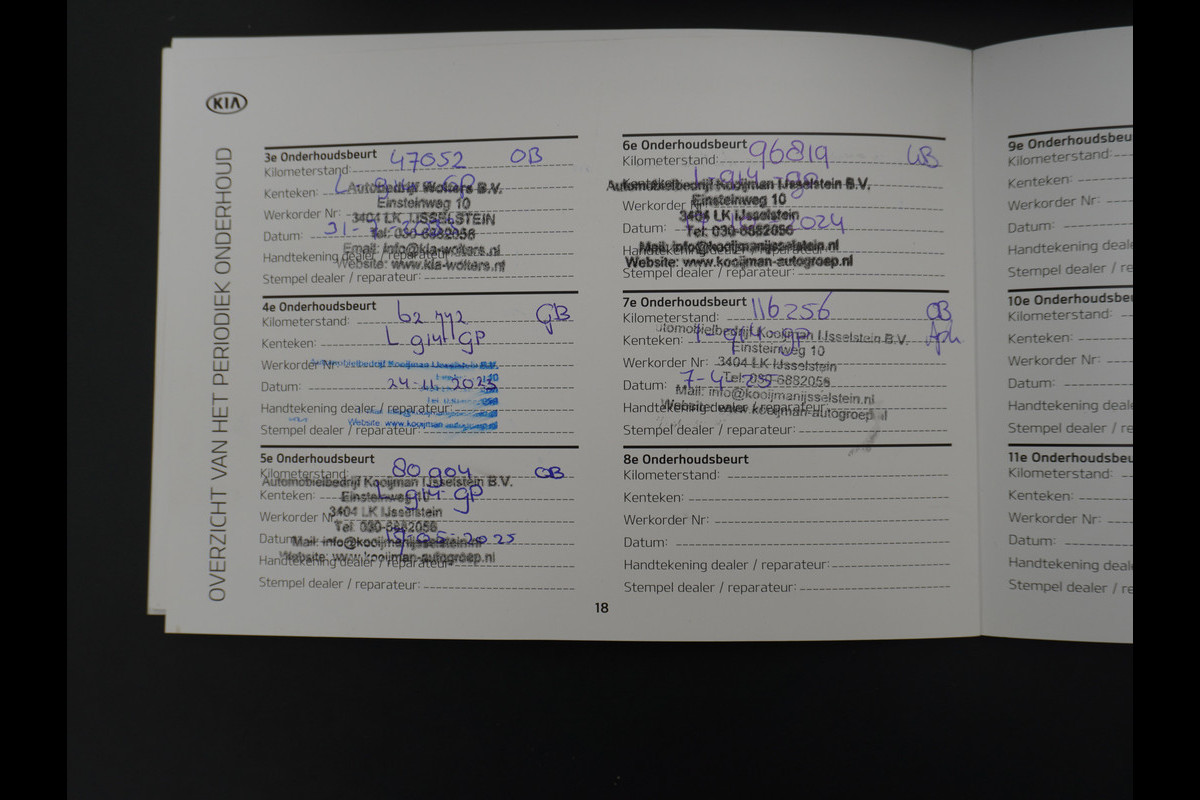 KIA
OVERZICHT VAN HET PERIODIEK ONDERHOUD
3e Onderhoudsbeurt
Kilometerstand: 47052 OB
Kenteken:
Autobedrijf Wolters B.V.
Einsteinweg 10
Werkorder Nr:
3404 LK IJSSELSTEIN
Datum: 31-
Tel: 030-6882056
Email: info@kia-wolters.nl
Handtekening dealer / reparateur:
Website: www.kia-wolters.nl
Stempel dealer / reparateur:
4e Onderhoudsbeurt
Kilometerstand: GB
Kenteken: GP
Werkorder Nr:
Automobielbedrijf Kooijman IJsselstein B.V.
Datum: 24-11-2023
Handtekening dealer / reparateur:
Website: www.kooijman
Stempel dealer / reparateur:
5e Onderhoudsbeurt
Kilometerstand: 80904 OB
Automobielbedrijf Kooijman IJsselstein B.V.
Kenteken: GP
Einsteinweg 10
Werkorder Nr:
3404 LK IJsselstein
Tel. 030-6882056
Datum:
Mail: info@kooijmanijsselstein.nl
Website: www.kooijman-autogroep.nl
Handtekening dealer / reparateur:
Stempel dealer / reparateur:
6e Onderhoudsbeurt
Kilometerstand: 96819
Kenteken:
Automobielbedrijf Kooijman IJsselstein B.V.
Einsteinweg 10
Werkorder Nr:
3404 LK IJsselstein
Datum: 2024
Tel: 030-6882056
Mail: info@kooijmanijsselstein.nl
Handtekening dealer / reparateur:
Website: www.kooijman-autogroep.nl
Stempel dealer / reparateur:
7e Onderhoudsbeurt
Kilometerstand: 116256 OB
utomobielbedrijf Kooijman IJsselstein B.V.
Kenteken:
Einsteinweg 10
Werkorder Nr:
3404 LK IJsselstein
Datum: 7-4-25
Tel: 030-6882056
Mail: info@kooijmanijsselstein.nl
Handtekening dealer / reparateur:
Website: www.kooijman-autogroep.nl
Stempel dealer / reparateur:
8e Onderhoudsbeurt
Kilometerstand:
Kenteken:
Werkorder Nr:
Datum:
Handtekening dealer / reparateur:
Stempel dealer / reparateur:
9e Onderhoudsbeu
Kilometerstand:
Kenteken:
Werkorder Nr:
Datum:
Handtekening deale
Stempel dealer / re
10e Onderhoudsbe
Kilometerstand:
Kenteken:
Werkorder Nr:
Datum:
Handtekening deale
Stempel dealer / re
11e Onderhoudsbeu
Kilometerstand:
Kenteken:
Werkorder Nr:
Datum:
Handtekening deale
Stempel dealer / re
18